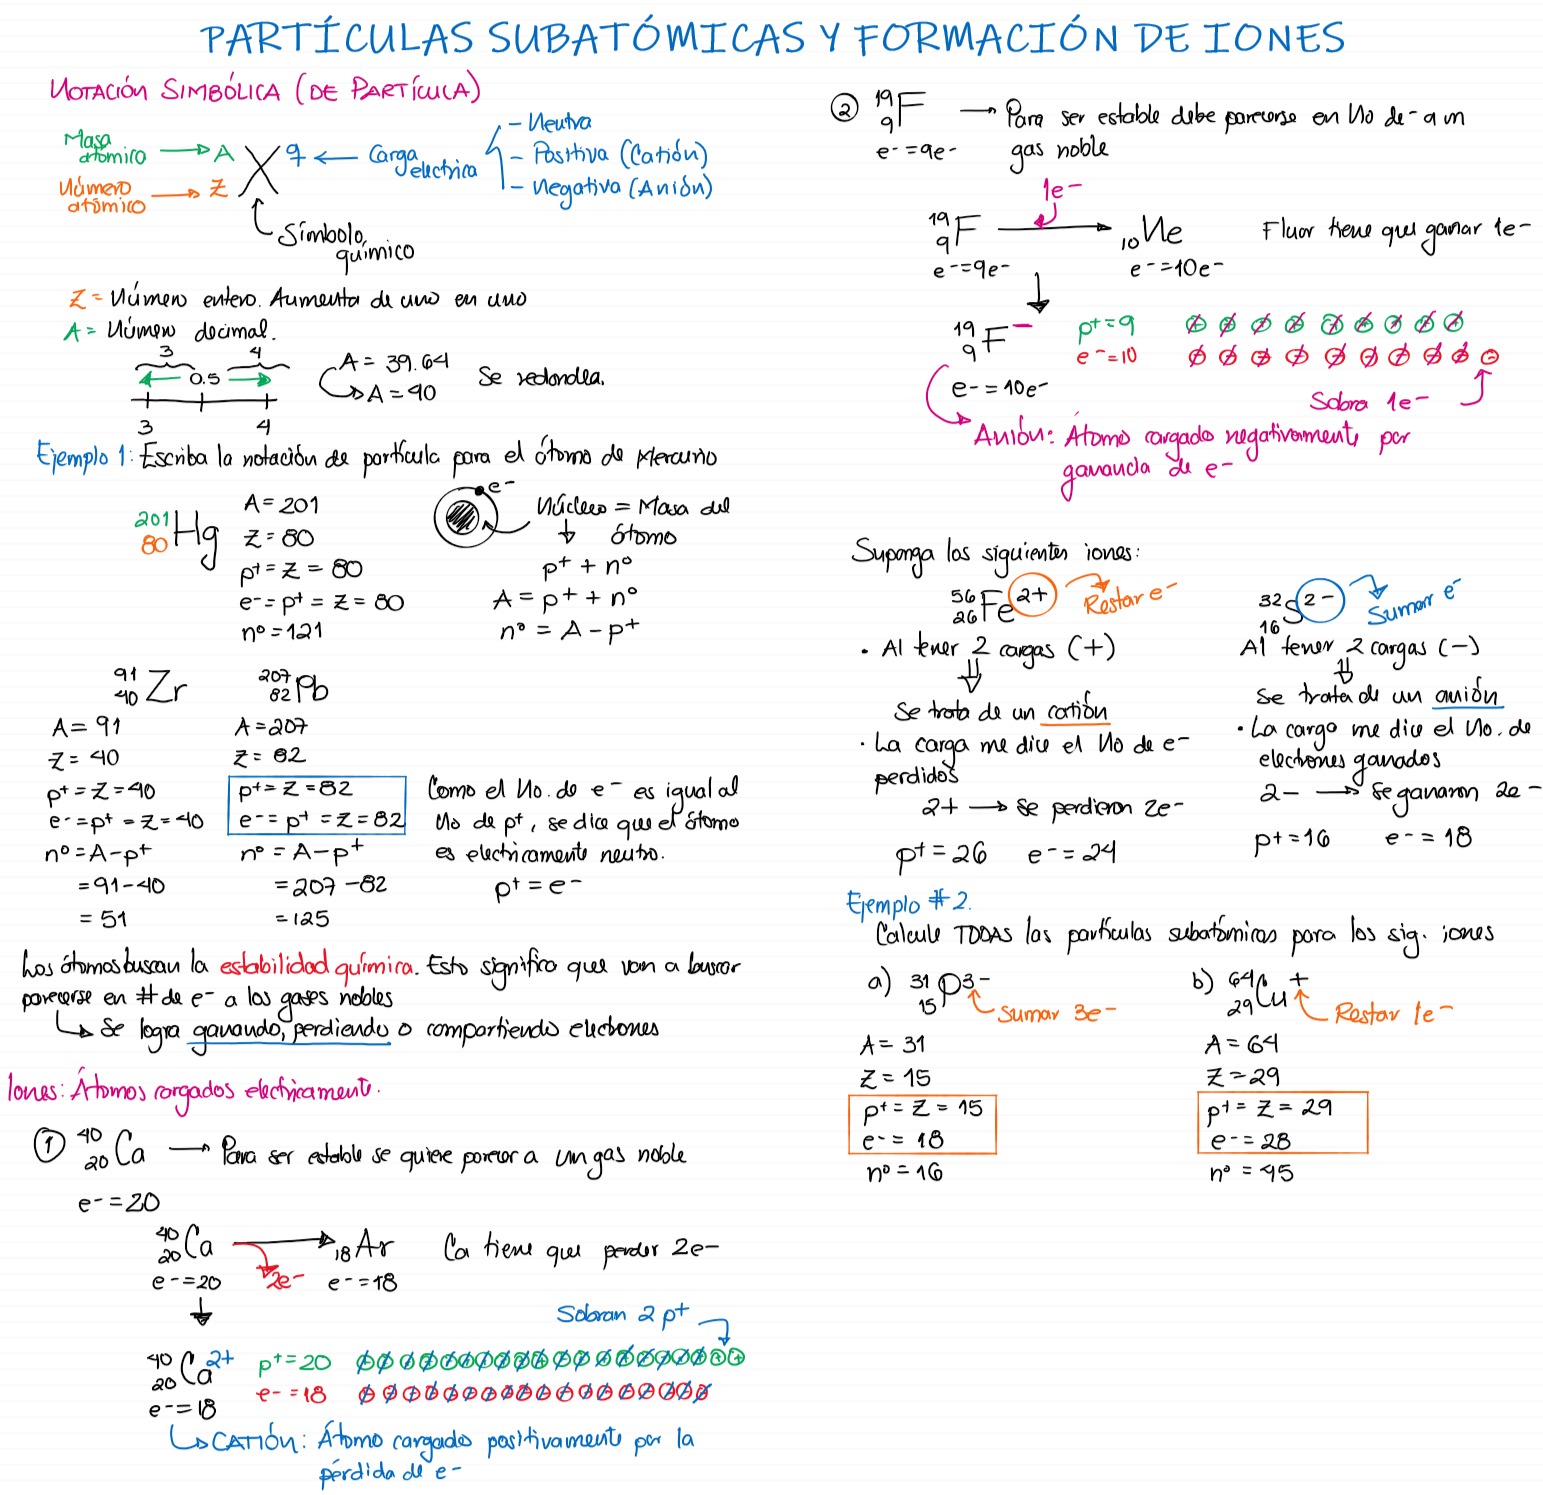 PARTÍCULAS SUBATÓMICAS Y FORMACIÓN DE IONES
NOTACIÓN SIMBÓLICA (DE PARTÍCULA)
Masa atómica → A
Número atómico → Z
X
q ← Carga electrica
- Neutra
- Positiva (Catión)
- Negativa (Anión)
Símbolo químico
Z = Número entero. Aumenta de uno en uno
A = Número decimal.
3 4
← 0.5 →
3 4
A = 39.64
↳ A = 40
Se redondea.
Ejemplo 1: Escriba la notación de partícula para el átomo de Mercurio
201
80 Hg
A = 201
Z = 80
p+ = Z = 80
e- = p+ = Z = 80
n° = 121
e-
Núcleo = Masa del átomo
↓
p+ + n°
A = p+ + n°
n° = A - p+
91
40 Zr
A = 91
Z = 40
p+ = Z = 40
e- = p+ = Z = 40
n° = A - p+
= 91 - 40
= 51
207
82 Pb
A = 207
Z = 82
p+ = Z = 82
e- = p+ = Z = 82
n° = A - p+
= 207 - 82
= 125
Como el No. de e- es igual al
No de p+, se dice que el átomo
es electricamente neutro.
p+ = e-
Los átomos buscan la estabilidad química. Esto significa que van a buscar
parecerse en # de e- a los gases nobles
↳ Se logra ganando, perdiendo o compartiendo electrones
Iones: Átomos cargados electricamente.
① 40
20 Ca → Para ser estable se quiere parecer a un gas noble
e- = 20
40
20 Ca → 18 Ar Ca tiene que perder 2e-
e- = 20 2e- e- = 18
↓
Sobran 2 p+
40
20 Ca 2+ p+ = 20
e- = 18
e- = 18
↳ CATIÓN: Átomo cargado positivamente por la
pérdida de e-
② 19
9 F → Para ser estable debe parecerse en No de - a un
e- = 9e- gas noble
1e-
19
9 F → 10 Ne Fluor tiene que ganar 1e-
e- = 9e- e- = 10e-
↓
19
9 F - p+ = 9
e- = 10
e- = 10e-
Sobra 1e-
Anión: Átomo cargado negativamente por
ganancia de e-
Suponga los siguientes iones:
56
26 Fe 2+ Restar e-
• Al tener 2 cargas (+)
⇓
Se trata de un catión
• La carga me dice el No de e-
perdidos
2+ → Se perdieron 2e-
p+ = 26 e- = 24
32
16 S 2- Sumar e-
Al tener 2 cargas (-)
⇓
Se trata de un anión
• La carga me dice el No. de
electrones ganados
2- → Se ganaron 2e-
p+ = 16 e- = 18
Ejemplo #2.
Calcule TODAS las partículas subatómicas para los sig. iones
a) 31
15 P 3-
Sumar 3e-
A = 31
Z = 15
p+ = Z = 15
e- = 18
n° = 16
b) 64
29 Cu +
Restar 1e-
A = 64
Z = 29
p+ = Z = 29
e- = 28
n° = 45